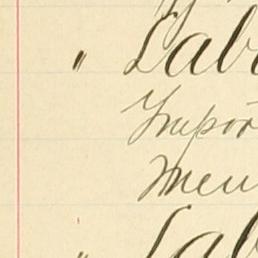 " Lab
Impor
Men
" Lab